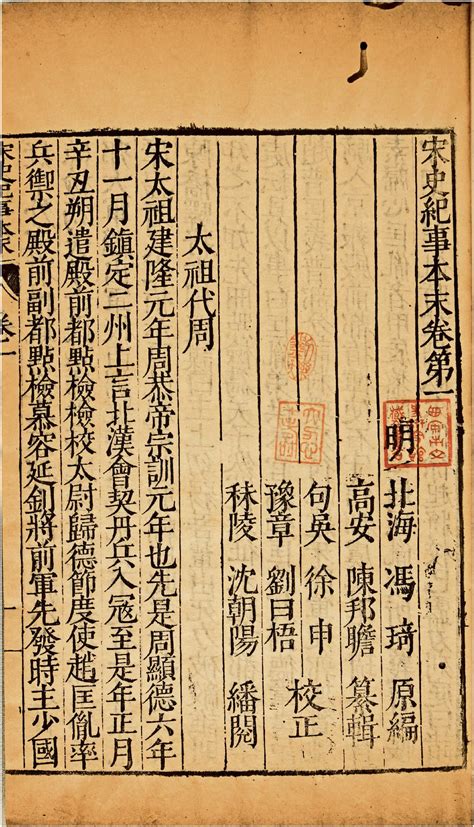 宋史紀事本末卷第一
明 北海 馮琦 原編
高安 陳邦瞻 纂輯
句吳 徐申
豫章 劉曰梧
校正
秣陵 沈朝陽 繙閱
太祖代周
宋太祖建隆元年周恭帝宗訓元年也先是周顯德六年
十一月鎮定二州上言北漢會契丹兵入寇至是年正月
辛丑朔遣殿前都點檢檢校太尉歸德節度使趙匡胤率
兵禦之殿前副都點檢慕容延釗將前軍先發時主少國
宋史紀事本末 卷一